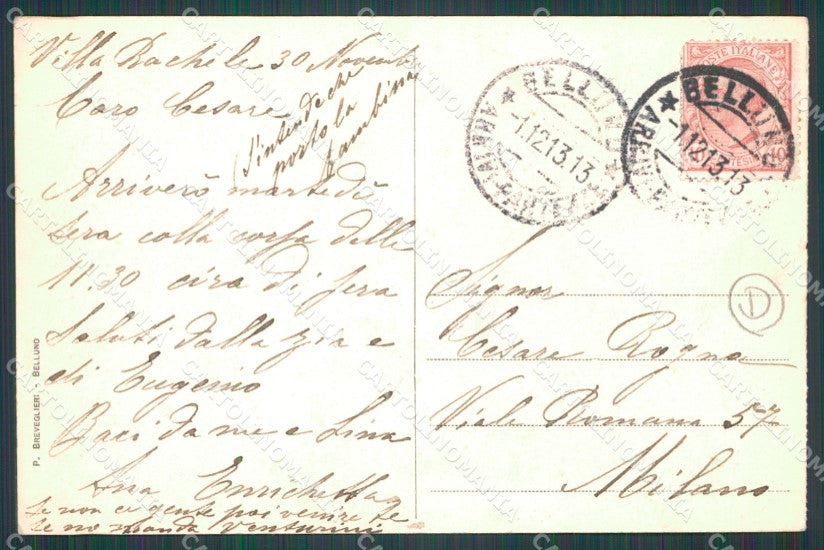 Villa Rachele 30 Novemb
Caro Cesare
S'intende che
porto la
bambina
Arriverò martedì
sera colla corsa delle
11.30 circa di sera
Saluti dalla zia e
di Eugenio
Baci da me e Lina
Enrichetta
se non ci gente poi venire
se no manda Venturini
P. BREVEGLIERI - BELLUNO
BELLUNO
-1.12.13.13
ARRIVI PARTENZE
BELLUNO
-1.12.13.13
POSTE ITALIANE
10
D
Signor
Cesare Rogna
Viale Romana 57
Milano
CARTOLINOMANIA